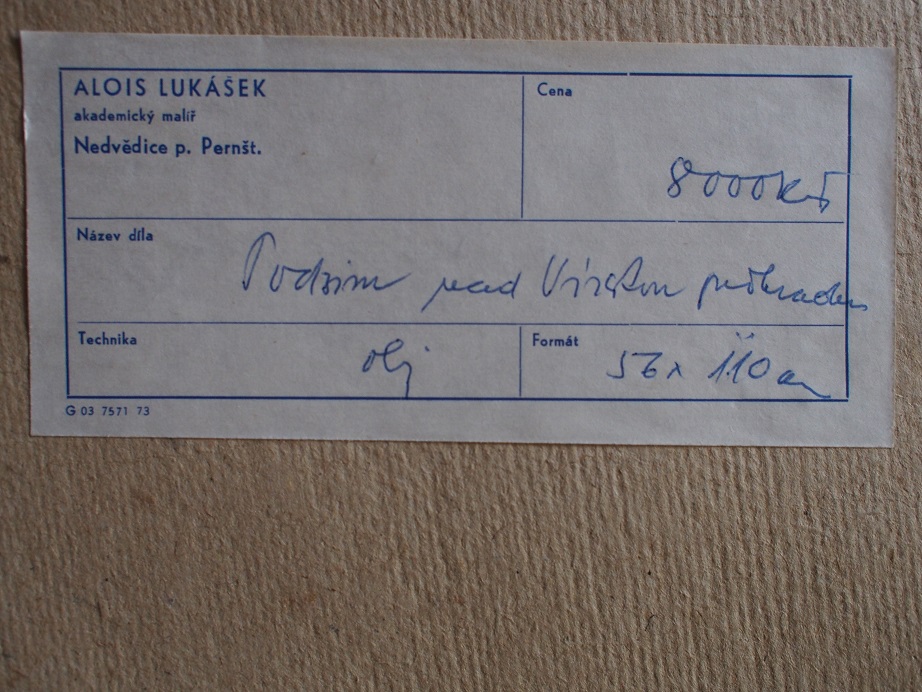 ALOIS LUKÁŠEK
akademický malíř
Nedvědice p. Pernšt.
Cena
8000 Kčs
Název díla
Podzim nad Vírskou přehradou
Technika
olej
Formát
56 x 110 cm
G 03 7571 73